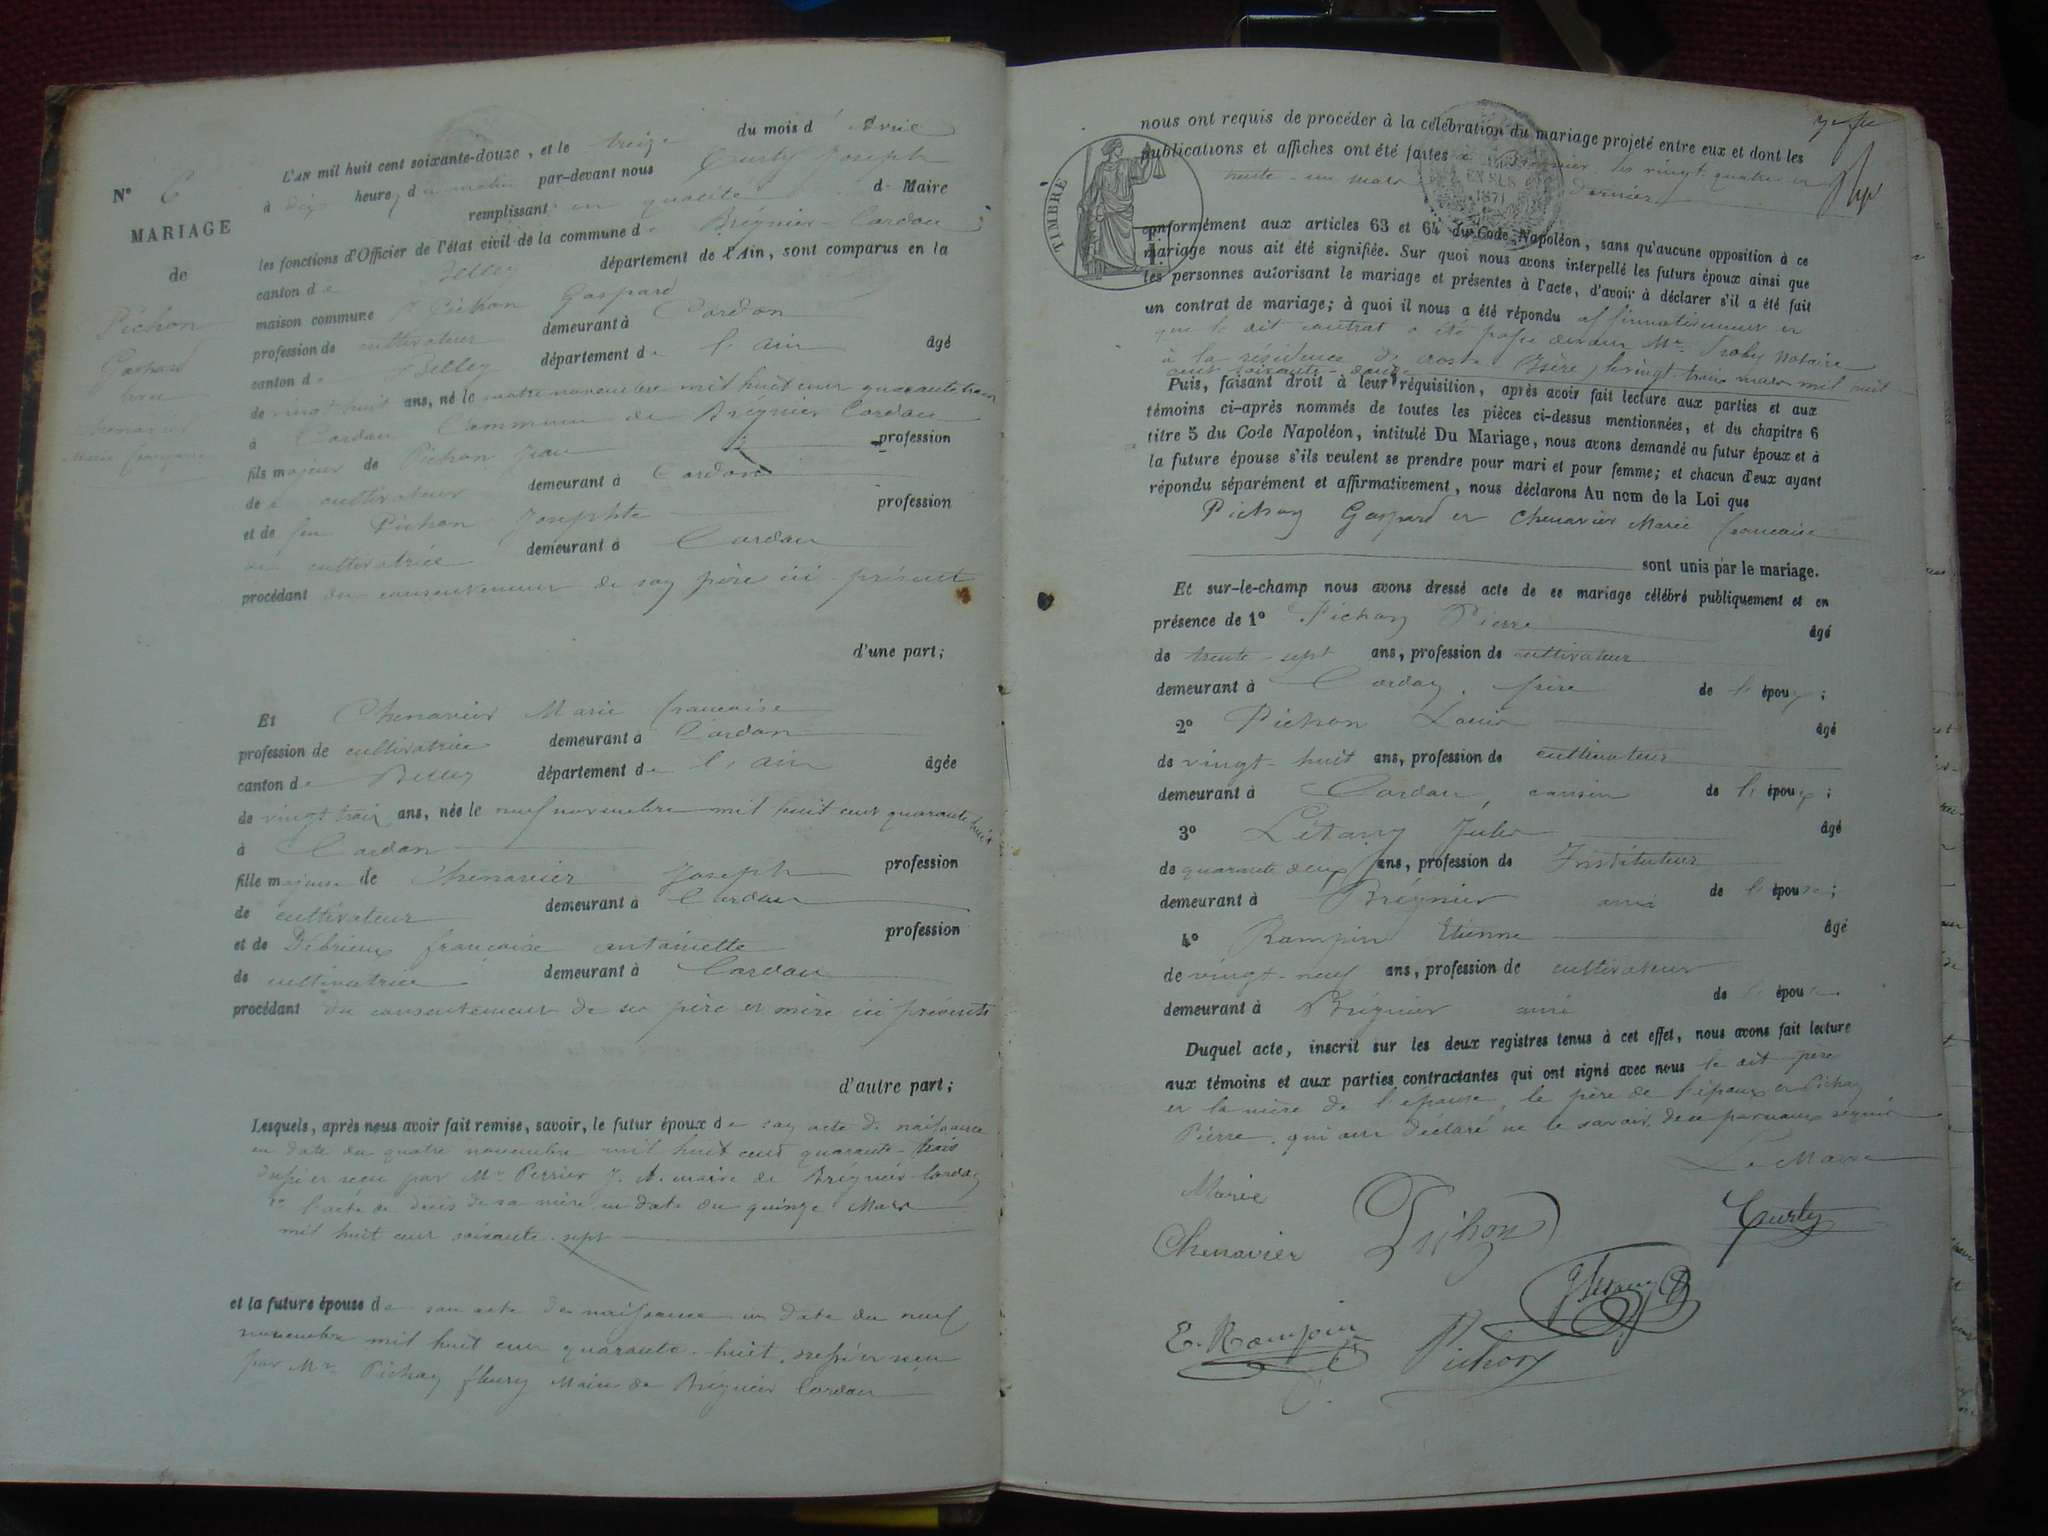 N° 6
MARIAGE
de
Pichon
Gaspard
avec
Chenavier
Marie française
L'AN mil huit cent soixante-douze, et le treize du mois d'Avril
à dix heures du matin par-devant nous Curty Joseph
remplissant en qualité de Maire
les fonctions d'Officier de l'état civil de la commune de Brégnier-Cordon
canton de Belley département de l'Ain, sont comparus en la
maison commune Pichon Gaspard
profession de cultivateur demeurant à Cordon
canton de Belley département de l'ain âgé
de vingt huit ans, né le quatre novembre mil huit cent quarante trois
à Cordon Commune de Brégnier Cordon
fils majeur de Pichon Jean profession
de cultivateur demeurant à Cordon
et de feu Pichon Josephte profession
de cultivatrice demeurant à Cordon
procédant du consentement de son père ici présent
d'une part;
Et Chenavier Marie française
profession de cultivatrice demeurant à Cordon
canton de Belley département de l'ain âgée
de vingt trois ans, née le neuf novembre mil huit cent quarante huit
à Cordon
fille majeure de Chenavier Joseph profession
de cultivateur demeurant à Cordon
et de Débrieux française antoinette profession
de cultivatrice demeurant à Cordon
procédant du consentement de ses père et mère ici présents
d'autre part;
Lesquels, après nous avoir fait remise, savoir, le futur époux de son acte de naissance
en date du quatre novembre mil huit cent quarante-trois
dressé et reçu par Mr Perrier maire de Brégnier-Cordon
l'acte de décès de sa mère en date du quinze Mars
mil huit cent soixante-sept
et la future épouse de son acte de naissance en date du neuf
novembre mil huit cent quarante-huit, dressé et reçu
par Mr Pichon fleury Maire de Brégnier Cordon
nous ont requis de procéder à la célébration du mariage projeté entre eux et dont les
publications et affiches ont été faites à Brégnier les vingt quatre et
trente-un mars dernier
TIMBRE
EN SUS
1871
conformément aux articles 63 et 64 du Code Napoléon, sans qu'aucune opposition à ce
mariage nous ait été signifiée. Sur quoi nous avons interpellé les futurs époux ainsi que
les personnes autorisant le mariage et présentes à l'acte, d'avoir à déclarer s'il a été fait
un contrat de mariage; à quoi il nous a été répondu affirmativement et
que le dit contrat a été passé devant Mr. Notaire
à la résidence de aoste Isère, le vingt-trois mars mil huit
cent soixante-douze
Puis, faisant droit à leur réquisition, après avoir fait lecture aux parties et aux
témoins ci-après nommés de toutes les pièces ci-dessus mentionnées, et du chapitre 6
titre 5 du Code Napoléon, intitulé Du Mariage, nous avons demandé au futur époux et à
la future épouse s'ils veulent se prendre pour mari et pour femme; et chacun d'eux ayant
répondu séparément et affirmativement, nous déclarons Au nom de la Loi que
Pichon Gaspard et Chenavier Marie française
sont unis par le mariage.
Et sur-le-champ nous avons dressé acte de ce mariage célébré publiquement et en
présence de 1° Pichon Pierre âgé
de trente-sept ans, profession de cultivateur
demeurant à Cordon, frère de l'époux;
2° Pichon Louis âgé
de vingt-huit ans, profession de cultivateur
demeurant à Cordon, cousin de l'époux;
3° Létany Jules âgé
de quarante deux ans, profession de Instituteur
demeurant à Brégnier ami de l'épouse;
4° Rampin Etienne âgé
de vingt-neuf ans, profession de cultivateur
demeurant à Brégnier ami de l'épouse
Duquel acte, inscrit sur les deux registres tenus à cet effet, nous avons fait lecture
aux témoins et aux parties contractantes qui ont signé avec nous le dit père
et la mère de l'épouse, le père de l'époux et Pichon
Pierre qui ont déclaré ne le savoir, de ce par nous requis
Le Maire
Marie
Chenavier
Pichon
Curty
E. Rampin
Pichon